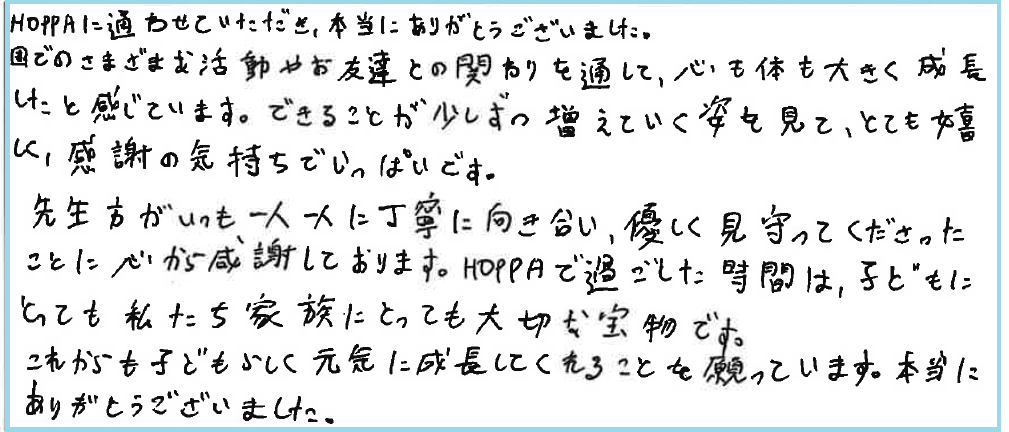 HOPPAに通わせていただき、本当にありがとうございました。
園でのさまざまな活動やお友達との関わりを通して、心も体も大きく成長
したと感じています。できることが少しずつ増えていく姿を見て、とても嬉
しく、感謝の気持ちでいっぱいです。
先生方がいつも一人一人に丁寧に向き合い、優しく見守ってくださった
ことに心から感謝しております。HOPPAで過ごした時間は、子どもに
とっても私たち家族にとっても大切な宝物です。
これからも子どもらしく元気に成長してくれることを願っています。本当に
ありがとうございました。